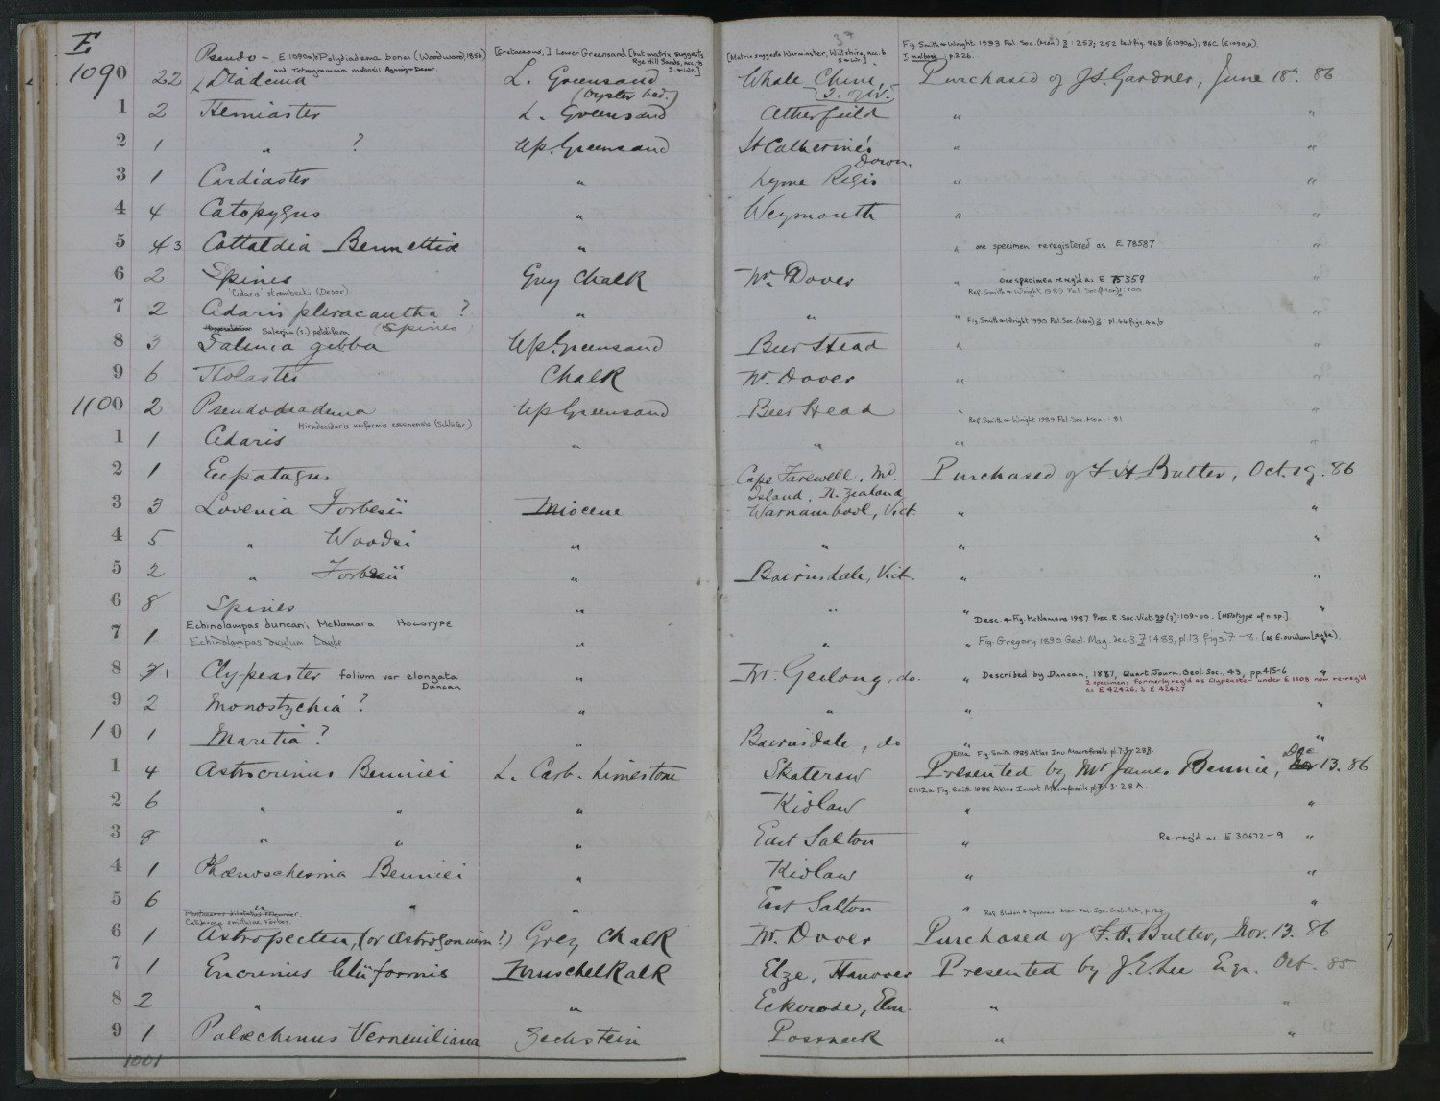 E
Pseudo- E1090a,b Polydiadema bonei (Woodward, 1856) [Cretaceous,] Lower Greensand [but matrix suggests Rye Hill Sands, acc. b [Matrix suggests Warminster, Wiltshire, acc. b Fig. Smith & Wright 1993 Pal. Soc. (Mon) : 253; 252 (E1090a); 86C (E1090b).
1090 22 Diadema L. Greensand Whale Chine, Purchased of J.S. Gardner, June 18. 86
(Oyster bed.) I. of W.
1 2 Hemiaster L. Greensand Atherfield " "
2 1 " ? Up. Greensand St Catherine's Down. " "
3 1 Cardiaster " Lyme Regis " "
4 4 Catopygus " Weymouth " "
5 4 3 Cottaldia Bennettiæ " " one specimen reregistered as E 78587 "
6 2 Spines Grey Chalk Nr. Dover " one specimen rereg'd as E 75359 "
'Cidaris' strombecki (Desor) Ref. Smith & Wright 1989 Pal. Soc. (Mon) : 100
7 2 Cidaris pleracantha ? (Spines) " " " Fig. Smith & Wright 1990 Pal. Soc. (Mon) : pl. 44 figs. 4a,b
Salenia (S.) petalifera
8 3 Salenia gibba Up. Greensand Beer Head " "
9 6 Holaster Chalk Nr. Dover " "
1100 2 Pseudodiadema Up Greensand Beer Head " "
Hirudocidaris uniformis essenensis (Schlüter) Ref. Smith & Wright 1989 Pal. Soc. Mon. : 81
1 1 Cidaris " " " "
2 1 Eupatagus Cape Farewell, Mid. Island, N. Zealand Purchased of F. H. Butler, Oct. 19. 86
3 3 Lovenia Forbesii Miocene Warnambool, Vict. " "
4 5 " Woodsi " " " "
5 2 " Forbesii " Bairnsdale, Vict. " "
6 8 Spines " " " "
Echinolampas duncani, McNamara Holotype Desc. & Fig. McNamara 1987 Proc. R. Soc. Vict 99 (3): 109-10. [Holotype of n. sp.]
7 1 Echinolampas ovulum Laube " " " Fig. Gregory 1890 Geol. Mag. dec 3, 7: 483, pl. 13 figs. 7-8. (as E. ovulum Laube).
8 1 Clypeaster folium var elongata Duncan " Nr. Geelong, do. " Described by Duncan, 1887, Quart. Journ. Geol. Soc., 43, pp. 415-6 "
2 specimens formerly reg'd as Clypeaster under E 1108 now re-reg'd as E 42426, & E 42427
9 2 Monostychia ? " " " "
10 1 Maretia ? " Bairnsdale, do " "
E1111a Fig. Smith 1985 Atlas Inv. Macrofossils pl. 7.3.28B.
1 4 Astrocrinus Benniei L. Carb. Limestone Skateraw Presented by Mr James Bennie, Dec 13. 86
E1112a Fig. Smith 1985 Atlas Invert. Macrofossils pl. 7.3.28 A.
2 6 " " " Kidlaw " "
3 9 " " " East Salton " Re-reg'd as E 30672-9 "
4 1 Phænoschisma Benniei " Kidlaw " "
5 6 " " " East Salton " "
Calliderma smithiae Forbes.
6 1 Astropecten, (or Astrogonium ?) Grey Chalk Nr. Dover Purchased of F. H. Butler, Nov. 13. 86
7 1 Encrinus liliiformis Muschelkalk Elze, Hanover Presented by J. E. Lee Esqr. Oct. 85
8 2 " " Eckerode, Elm. " "
9 1 Palæchinus Verneuiliana Zechstein Possneck " "
1001